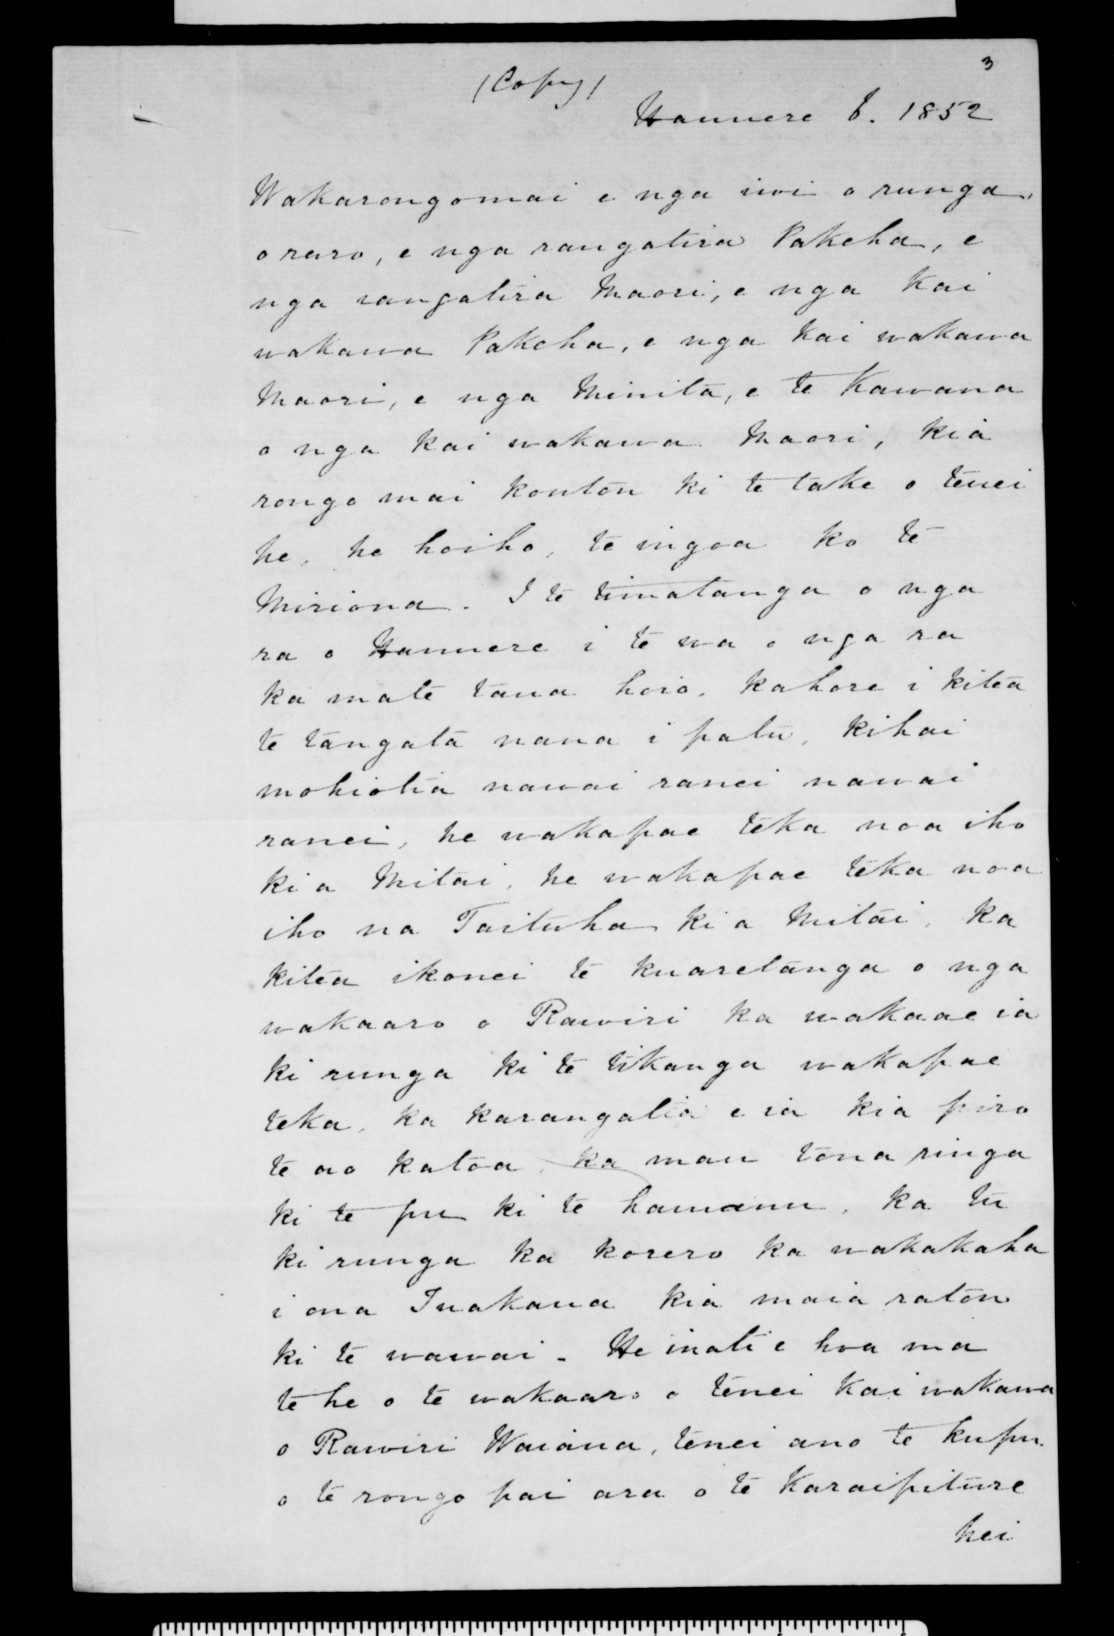 3
(Copy)
Hanuere 6. 1852
Wakarongomai e nga iwi o runga,
o raro, e nga rangatira Pakeha, e
nga rangatira Maori, e nga Kai
wakawa Pakeha, e nga Kai wakawa
Maori, e nga Minita, e te Kawana
o nga Kai wakawa Maori, kia
rongo mai koutou ki te take o tenei
he, he hoiho, te ingoa ko te
Miriona. I te timatanga o nga
ra o Hanuere i te wa o nga ra
ka mate taua hoio, kahore i kitea
te tangata nana i patu, kihai
mohiotia nawai ranei nawai
ranei, he wakapae teka noa iho
ki a Mitai, he wakapae teka noa
iho na Taituha ki a Mitai, Ka
kitea ikonei te kuaretanga o nga
wakaaro o Rawiri ka wakaae ia
ki runga ki te tikanga wakapae
teka, ka karangatia e ia kia piro
te ao katoa, ka mau tona ringa
ki te pu ki te hamanu, ka tu
ki runga ka korero ka wakakaha
i ona Tuakana kia maia ratou
ki te wawai - He inati e hoa ma
te he o te wakaaro o tenei Kai wakawa
o Rawiri Waiaua, tenei ano te kupu
o te rongo pai ara o te Karaipiture
kei